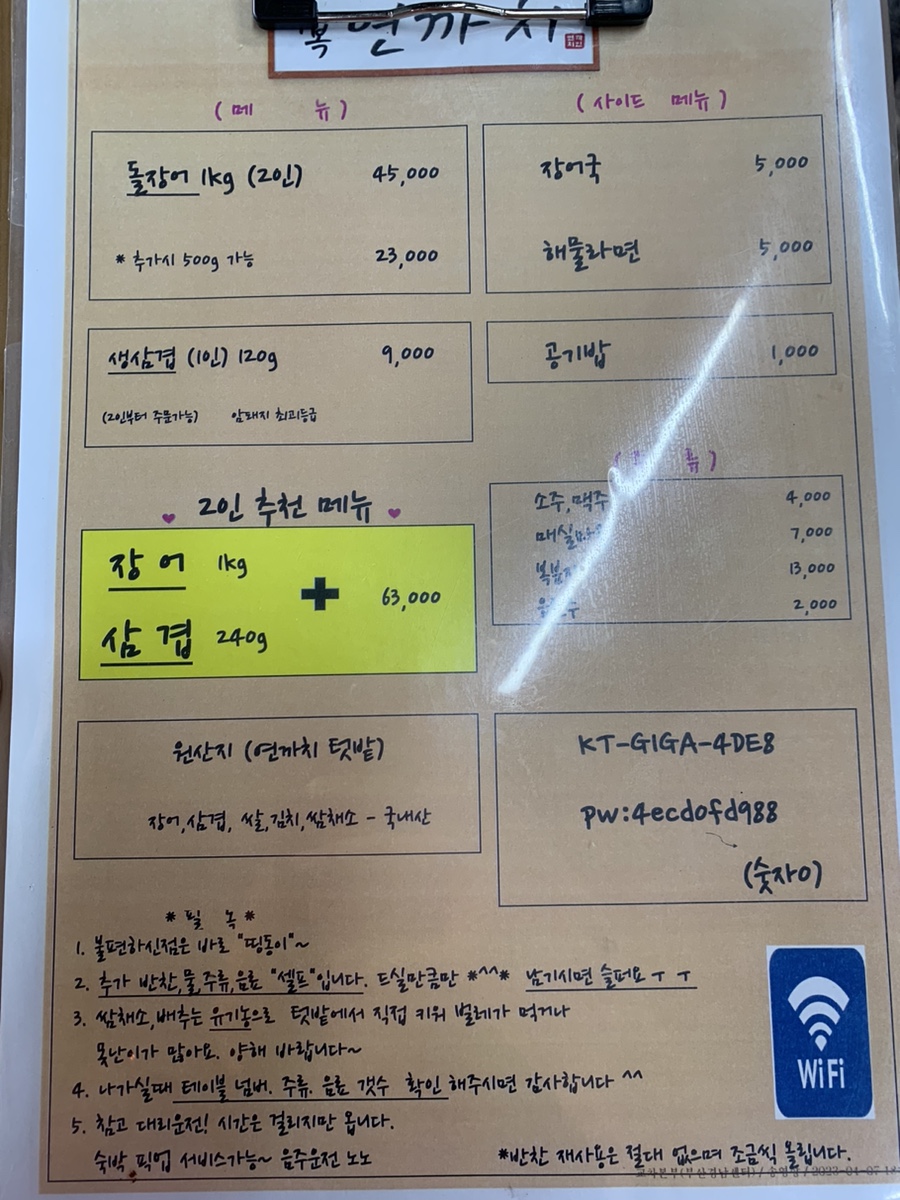 연까치
( 메 뉴 )
돌장어 1kg (2인) 45,000
* 추가시 500g 가능 23,000
생삼겹 (1인) 120g 9,000
(2인부터 주문가능) 암돼지 최고등급
2인 추천 메뉴
장어 1kg
+ 63,000
삼겹 240g
원산지 (연까치 텃밭)
장어,삼겹, 쌀,김치,쌈채소 - 국내산
( 사이드 메뉴 )
장어국 5,000
해물라면 5,000
공기밥 1,000
류 )
소주,맥주 4,000
매실 7,000
13,000
2,000
KT-GIGA-4DE8
pw:4ecd0fd988
(숫자0)
* 필 녹 *
1. 불편하신점은 바로 "띵동이"~
2. 추가 반찬,물,주류,음료 "셀프"입니다. 드실만큼만 *^^* 남기시면 슬퍼요 ㅜ ㅜ
3. 쌈채소,배추는 유기농으로 텃밭에서 직접 키워 벌레가 먹거나
못난이가 많아요. 양해 바랍니다~
4. 나가실때 테이블 넘버. 주류. 음료 갯수 확인 해주시면 감사합니다 ^^
5. 참고 대리운전! 시간은 걸리지만 옵니다.
숙박 픽업 서비스가능~ 음주운전 노노
WiFi
*반찬 재사용은 절대 없으며 조금씩 올립니다.